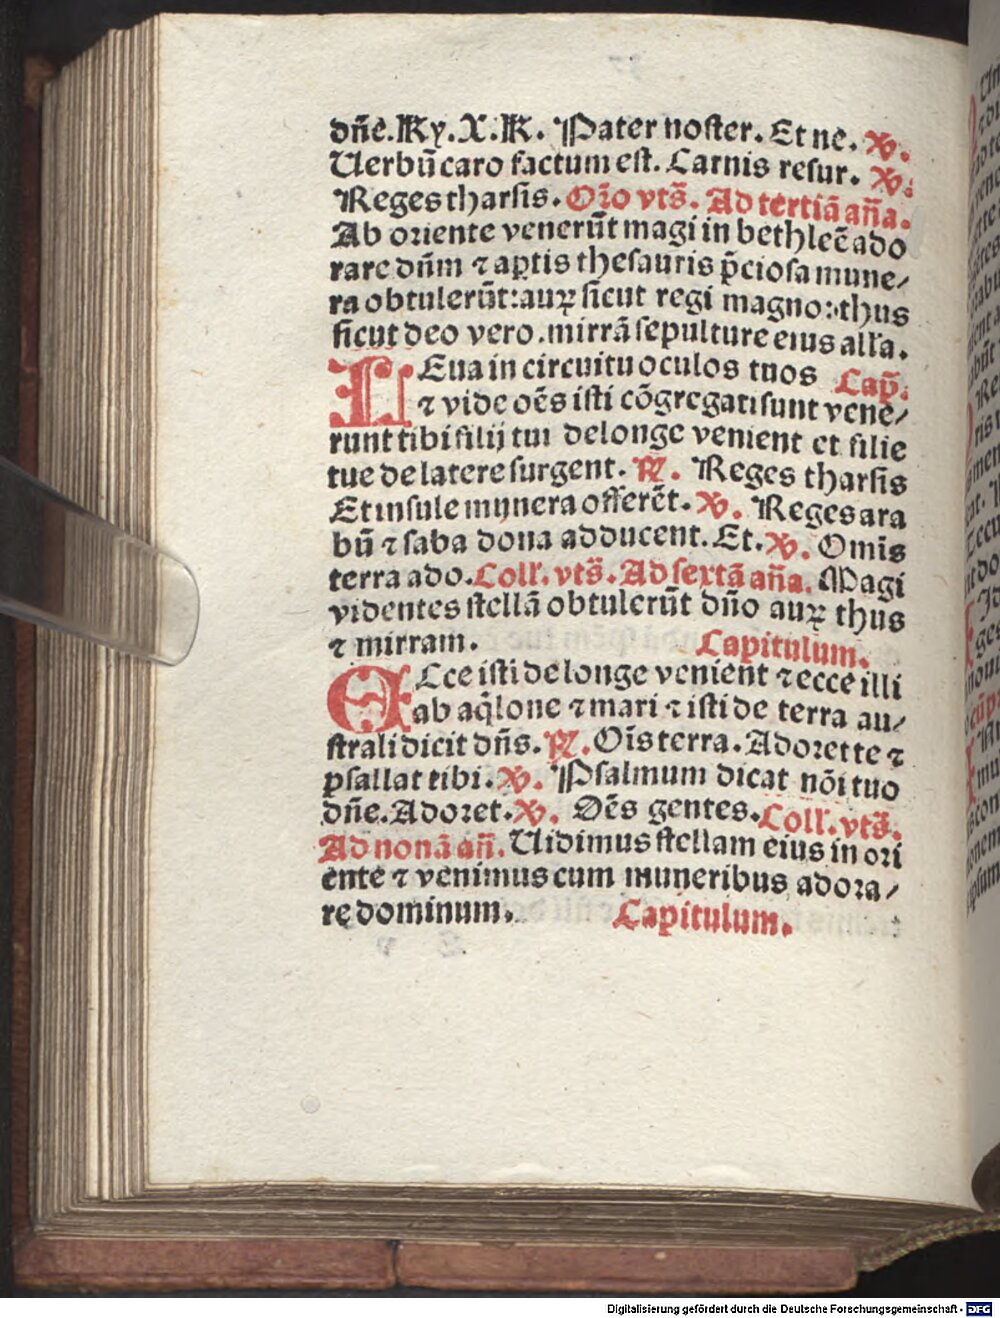 dñe. Ky. X. K. Pater noster. Et ne. V.
Uerbũ caro factum est. Carnis resur. V.
Reges tharsis. Orõ vts̃. Ad tertiã añа.
Ab oriente venerũt magi in bethleẽ ado
rare dñm ⁊ aꝑtis thesauris p̃ciosa mune/
ra obtulerũt: auꝝ sicut regi magno: thus
sicut deo vero. mirrã sepulture eius all'a.
LEua in circuitu oculos tuos Cap̃.
⁊ vide oẽs isti cõgregati sunt vene/
runt tibi filij tui de longe venient et filie
tue de latere surgent. R. Reges tharsis
Et insule munera offerẽt. V. Reges ara
bũ ⁊ saba dona adducent. Et. V. Omĩs
terra ado. Coll'. vts̃. Ad sextã añа. Magi
videntes stellã obtulerũt dño auꝝ thus
⁊ mirram. Capitulum.
ECce isti de longe venient ⁊ ecce illi
ab aq̃lone ⁊ mari ⁊ isti de terra au/
strali dicit dñs. R. Oĩs terra. Adoret te ⁊
psallat tibi. V. Psalmum dicat nõi tuo
dñe. Adoret. V. Oẽs gentes. Coll'. vts̃.
Ad nonã añ. Uidimus stellam eius in ori
ente ⁊ venimus cum muneribus adora/
re dominum. Capitulum.
Digitalisierung gefördert durch die Deutsche Forschungsgemeinschaft - DFG